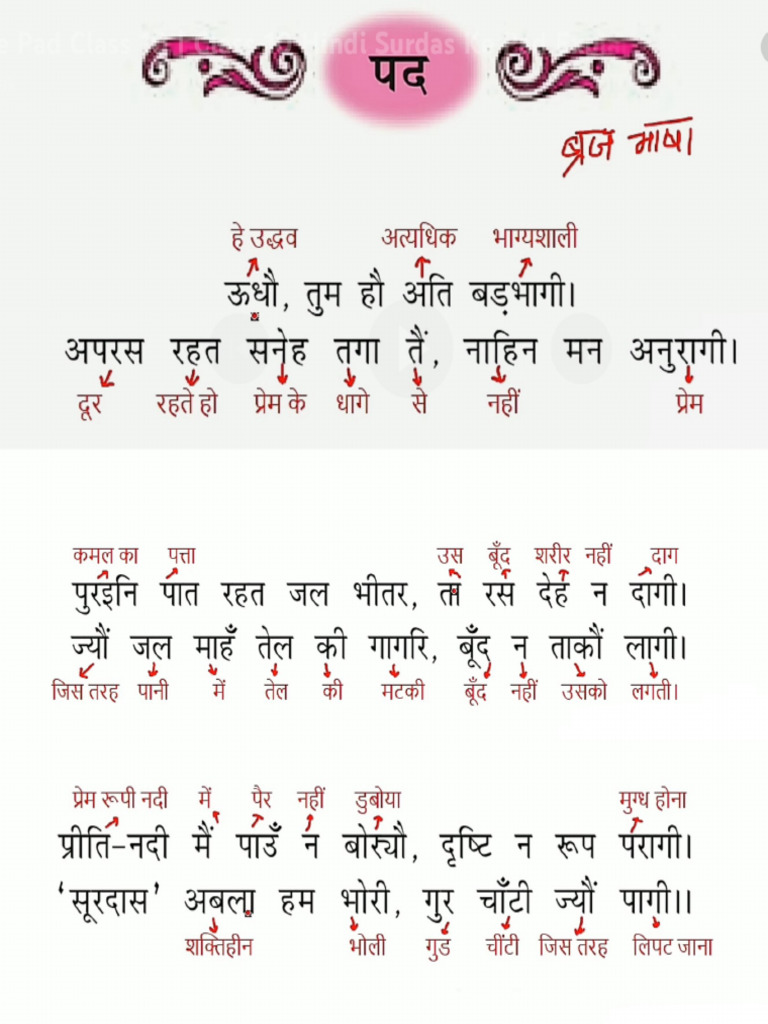 e Pad Class Hindi Surdas
पद
ब्रज भाषा
हे उद्धव अत्यधिक भाग्यशाली
ऊधौ, तुम हौ अति बड़भागी।
अपरस रहत सनेह तगा तैं, नाहिन मन अनुरागी।
दूर रहते हो प्रेम के धागे से नहीं प्रेम
कमल का पत्ता उस बूँद शरीर नहीं दाग
पुरइनि पात रहत जल भीतर, ता रस देह न दागी।
ज्यौं जल माहँ तेल की गागरि, बूँद न ताकौं लागी।
जिस तरह पानी में तेल की मटकी बूँद नहीं उसको लगती।
प्रेम रूपी नदी में पैर नहीं डुबोया मुग्ध होना
प्रीति-नदी मैं पाउँ न बोरयौ, दृष्टि न रूप परागी।
‘सूरदास’ अबला हम भोरी, गुर चाँटी ज्यौं पागी।।
शक्तिहीन भोली गुड चींटी जिस तरह लिपट जाना